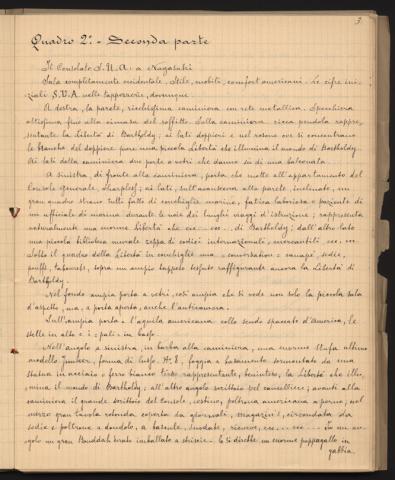 3
Quadro 2º - Seconda parte
Il Consolato S.U.A. a Nagasaki
Sala completamente occidentale. Stile, mobili, comfort americani. Le cifre ini-
ziali S.U.A. nelle tappezzerie, dovunque.
A destra, la parete, ricchissima caminiera con rete metallica. Specchiera
altissima fino alla cimasa del soffitto. Sulla caminiera ricca pendola rappre-
sentante la Libertà di Bartholdy; ai lati doppieri e nel rosone ove si concentrano
le branche del doppiere pure una piccola Libertà che illumina il mondo di Bartholdy.
Ai lati della caminiera due porte a vetri che danno su di una balconata.
A sinistra, di fronte alla caminiera, porta che mette all'appartamento del
Console Generale, Sharpless; ai lati, sull' alla parete inclinato, un
gran quadro strano tutto fatto di conchiglie marine, fatica laboriosa e paziente di
un ufficiale di marina durante le noie dei lunghi viaggi d'istruzione; rappresenta
naturalmente una enorme Libertà che ecc. ecc. di Bartholdy; dall'altro lato
una piccola biblioteca murale zeppa di codici internazionali, mercantili, ecc.
Sotto il quadro della Libertà in conchiglie una "conversation" = canapè, sedie,
pouffs, tabourets, sopra un ampio tappeto tessuto raffigurante ancora la Libertà di
Bartholdy.
Nel fondo ampia porta a vetri, così ampia che si vede non solo la piccola sala
d'aspetto, ma, a porta aperta, anche l'anticamera.
Sull'ampia porta = l'aquila americana collo scudo spaccato d'America, le
stelle in alto e i pali in basso.
Nell'angolo a sinistra, in barba alla caminiera, una enorme stufa, ultimo
modello Junker, forma di lusso, A. 8, foggia a basamento sormontato da una
statua in acciaio e ferro bianco terso rappresentante, beninteso, la Libertà che illu-
mina il mondo di Bartholdy; all'altro angolo scrittoio del cancelliere; avanti alla
caminiera il grande scrittoio del Console, cestino, poltrona americana a perno; nel
mezzo gran tavola rotonda coperta da giornali, magazin's, circondata da
sedie e poltrone a dondolo, a bascule, snodate, ecc... ecc... In un an-
golo un gran Buddah dorato imballato a striscie. Lo si direbbe un enorme pappagallo in
gabbia.